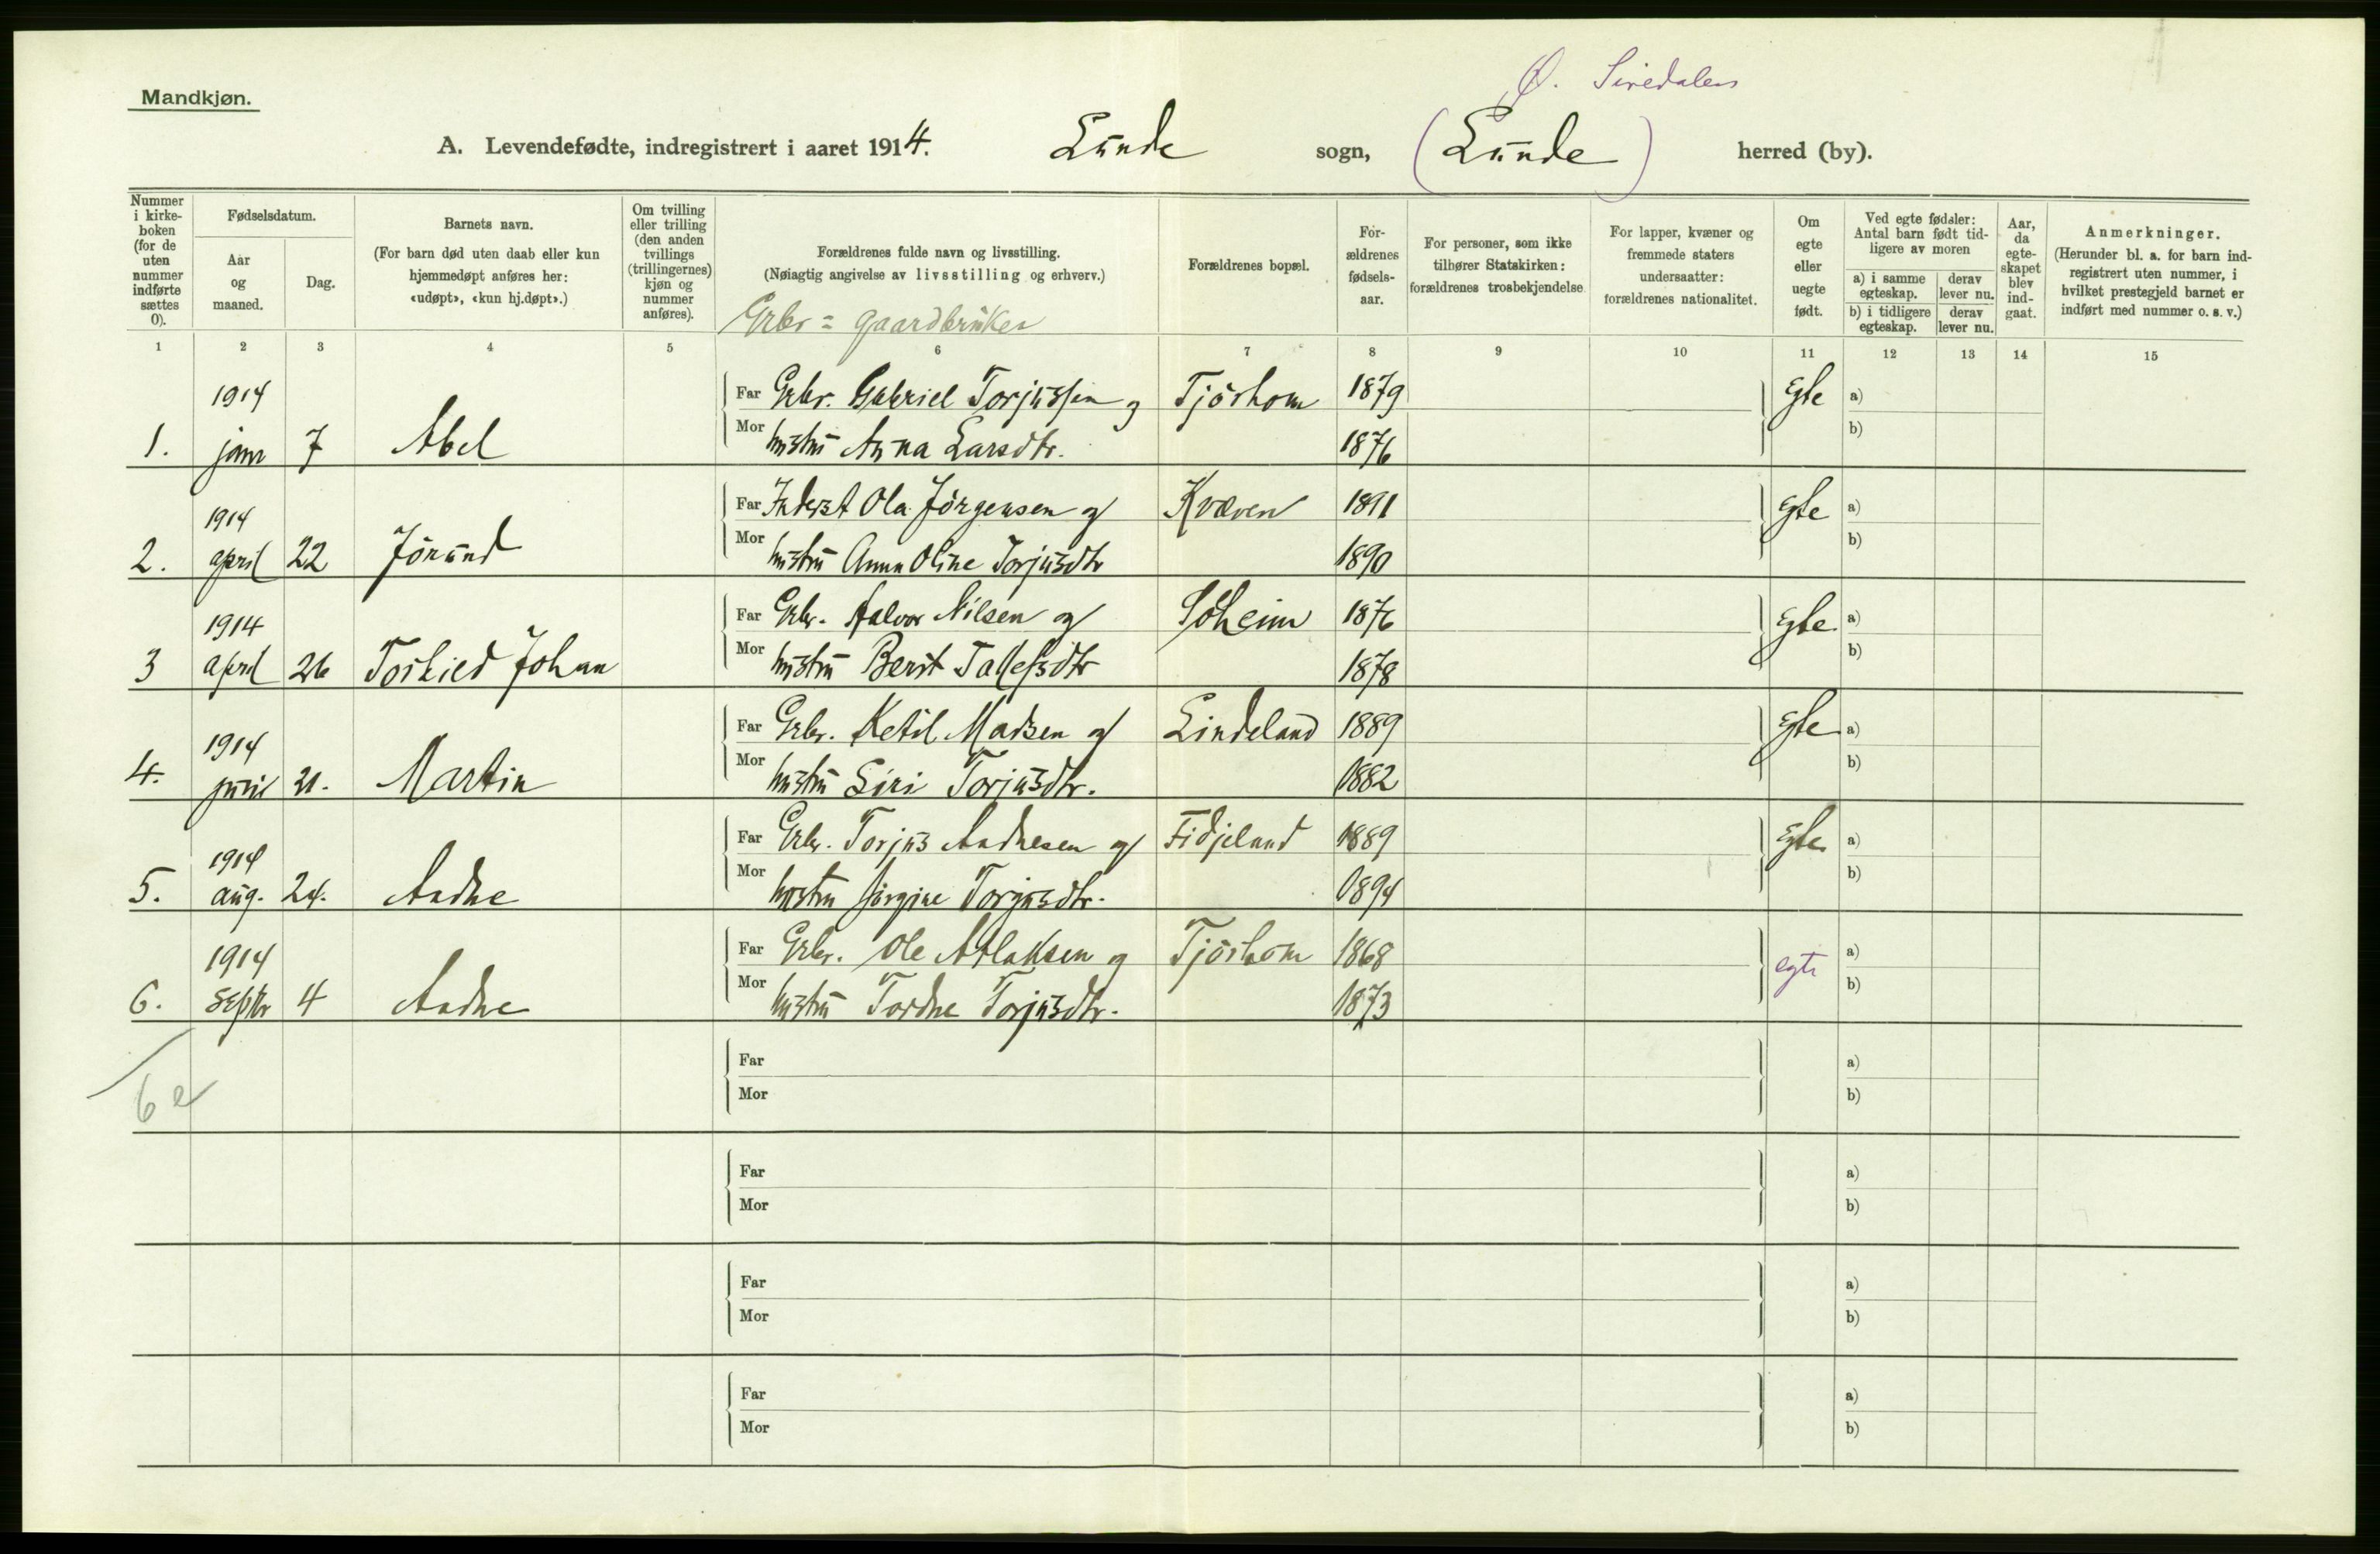 Ø. Siredalen
Mandkjøn.
A. Levendefødte, indregistrert i aaret 1914. Lunde sogn, (Lunde) herred (by).
Nummer i kirkeboken (for de uten nummer indførte sættes 0).
Fødselsdatum.
Aar og maaned.
Dag.
Barnets navn.
(For barn død uten daab eller kun hjemmedøpt anføres her: «udøpt», «kun hj.døpt».)
Om tvilling eller trilling (den anden tvillings (trillingernes) kjøn og nummer anføres).
Forældrenes fulde navn og livsstilling.
(Nøiagtig angivelse av livsstilling og erhverv.)
Grbr = gaardbruker
Forældrenes bopæl.
Forældrenes fødselsaar.
For personer, som ikke tilhører Statskirken: forældrenes trosbekjendelse.
For lapper, kvæner og fremmede staters undersaatter: forældrenes nationalitet.
Om egte eller uegte født.
Ved egte fødsler: Antal barn født tidligere av moren
a) i samme egteskap.
derav lever nu.
b) i tidligere egteskap.
derav lever nu.
Aar, da egteskapet blev indgaat.
Anmerkninger.
(Herunder bl. a. for barn indregistrert uten nummer, i hvilket prestegjeld barnet er indført med nummer o. s. v.)
1 2 3 4 5 6 7 8 9 10 11 12 13 14 15
1914 Far Grbr. Gabriel Torjussen og Tjörhom 1879 Egte a)
1. janr 7 Abel Mor hustru Anna Larsdtr. 1876 b)
1914 Far Inderst Ola Jörgensen og Kvæven 1891 Egte a)
2. april 22 Jörund Mor hustru Anna Oline Torjusdtr 1890 b)
1914 Far Grbr. Halvor Nilsen og Söheim 1876 Egte a)
3 april 26 Torkied Johan Mor hustru Berit Tallefsdtr 1878 b)
1914 Far Grbr. Ketil Madsen og Lindeland 1889 Egte a)
4. 21. Martin Mor hustru Siri Torjusdtr. 1882 b)
1914 Far Grbr. Torjus Andresen og Fidjeland 1889 Egte a)
5. aug. 24. Andre Mor hustru Jörgine Torjusdtr. 1894 b)
1914 Far Grbr. Ole Atlaksen og Tjörhom 1868 egte a)
6. Septbr 4 Andre Mor hustru Tordne Torjusdtr. 1873 b)
Far a)
6 e Mor b)
Far a)
Mor b)
Far a)
Mor b)
Far a)
Mor b)